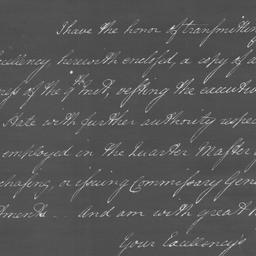 I have the honor of transmitting
cellency herewith enclosed, a copy of a
ress of the 9th inst, vesting the executive
State with further authority respec
employed in the Quarter Master G
chasing, or issuing Commissary Gene
tments — and am with great r
Your Excellency's